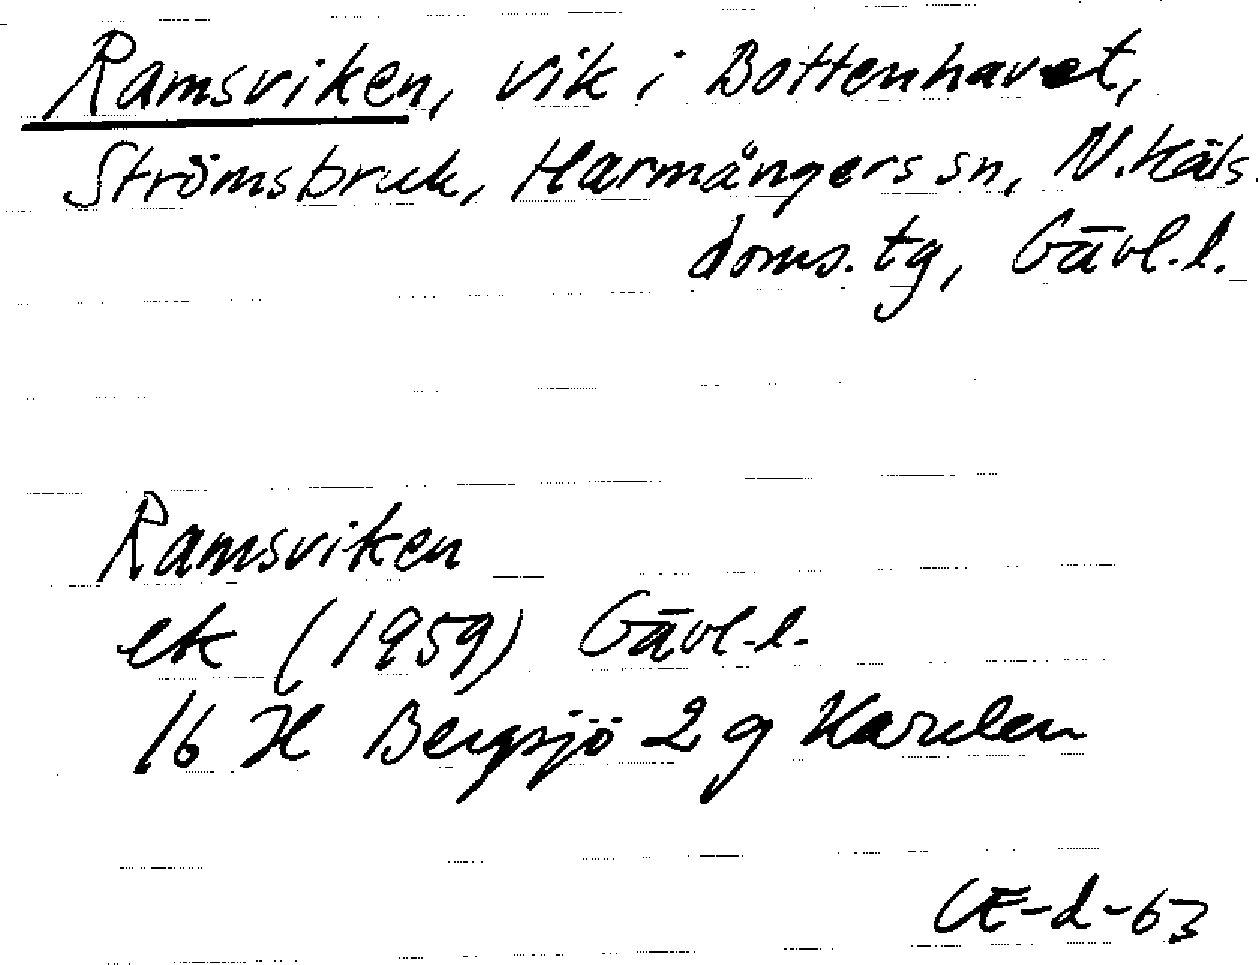 Ramsviken, vik i Bottenhavet,
Strömsbruk, Harmångers sn, N. Häls.
doms. tg, Gävl. l.
Ramsviken
ek (1959) Gävl. l.
16 H Bergsjö 2 g Karelen
CE-d-63